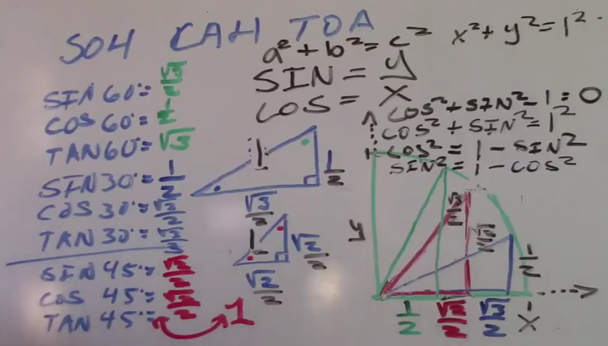 SOH CAH TOA
a² + b² = c²
x² + y² = 1²
SIN = y
COS = x
cos² + SIN² - 1 = 0
cos² + SIN² = 1²
cos² = 1 - SIN²
SIN² = 1 - COS²
SIN 60° =
COS 60° =
TAN 60° =
SIN 30° = 1/2
COS 30° = √3/2
TAN 30° =
SIN 45° = √2/2
COS 45° = √2/2
TAN 45° =
1
1
1/2
√3/2
1
√2/2
√2/2
y
√3/2
√2/2
1/2
1/2
√2/2
√3/2
1
x